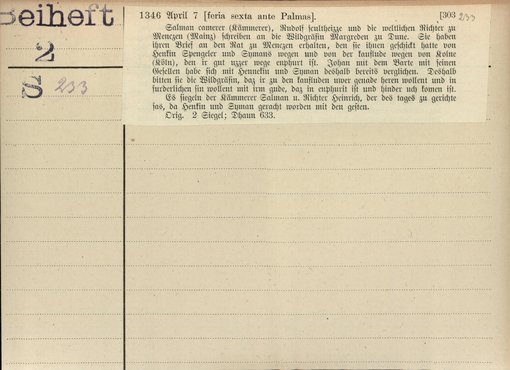 Beiheft
2
S 233
1346 April 7 [feria sexta ante Palmas]. [303 233
Salman camerer (Kämmerer), Rudolf scultheizze und die weltlichen Richter zu
Menczen (Mainz) schreiben an die Wildgräfin Margreden zu Dune. Sie haben
ihren Brief an den Rat zu Menczen erhalten, den sie ihnen geschickt hatte von
Henkin Spengeler und Symans wegen und von der kauflude wegen von Kolne
(Köln), den ir gut uzzer wege enphurt ist. Johan mit dem Barte mit seinen
Gesellen habe sich mit Hennekin und Syman deshalb bereits verglichen. Deshalb
bitten sie die Wildgräfin, daz ir zu den kaufluden uwer genade keren wollent und in
furderlichen sin wollent mit irm gude, daz in enphurit ist und hinder uch komen ist.
Es siegeln der Kämmerer Salman u. Richter Heinrich, der des tages zu gerichte
sas, da Henkin und Syman geracht worden mit den gesten.
Orig. 2 Siegel; Dhaun 633.